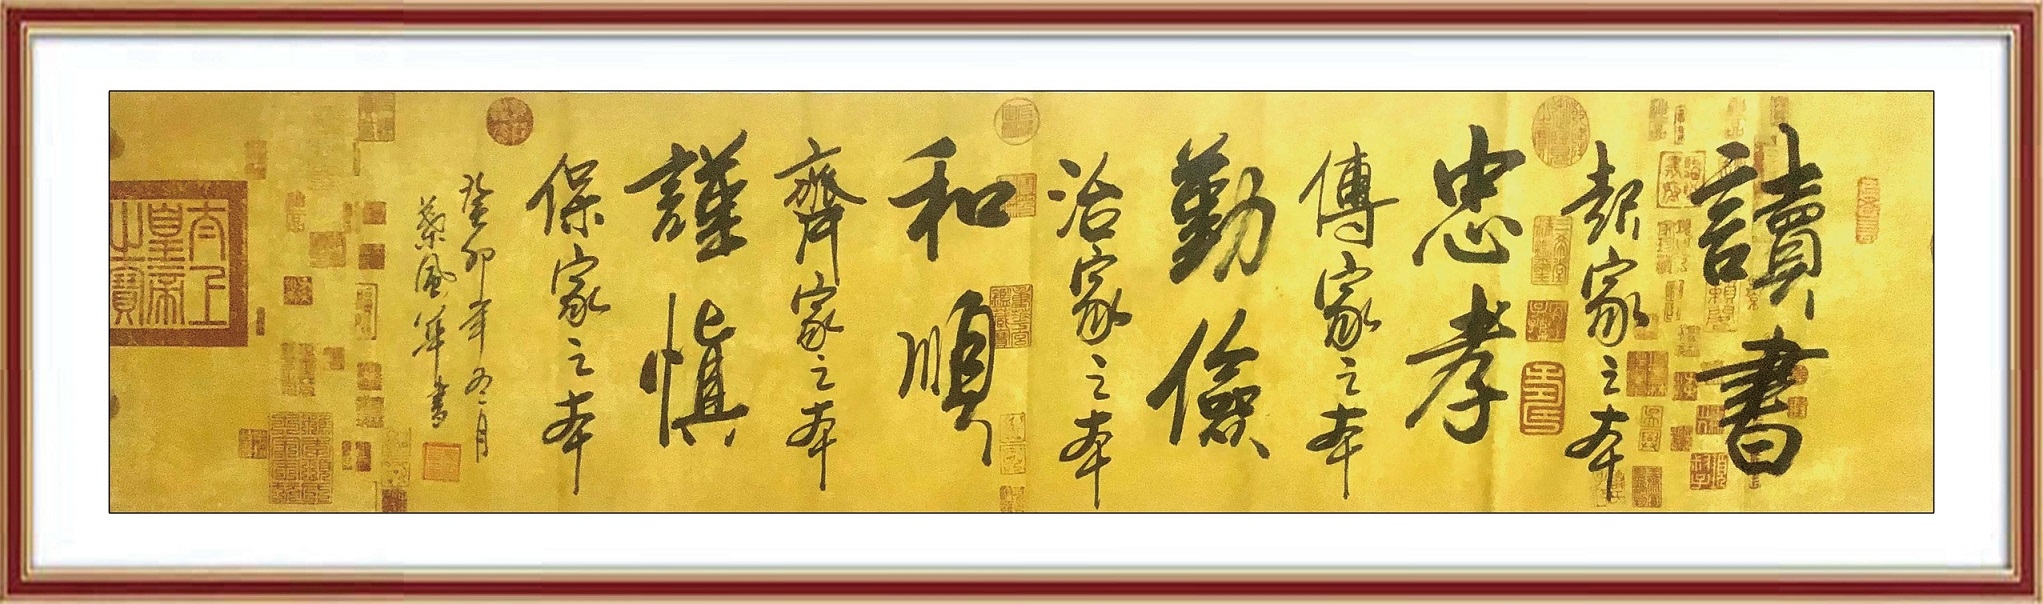 讀書
起家之本
忠孝
傳家之本
勤儉
治家之本
和順
齊家之本
謹慎
保家之本
癸卯年冬月
蔡風華書
太上
皇帝
之寶